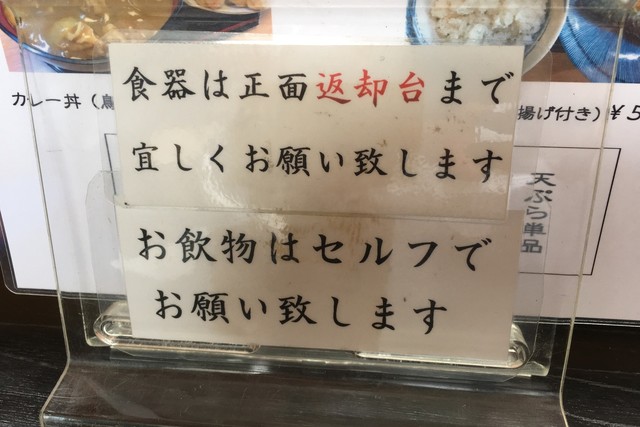 食器は正面返却台まで
宜しくお願い致します
お飲物はセルフで
お願い致します
カレー丼（
揚げ付き）￥5
天ぷら単品